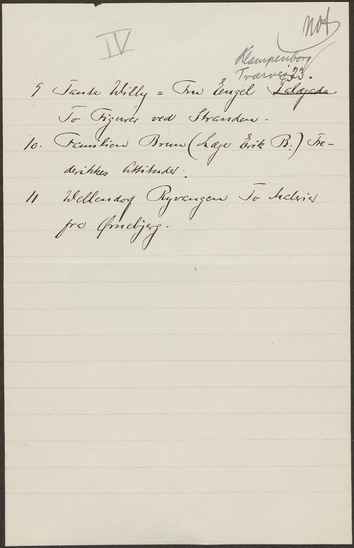 not
IV
Klampenborg
Tværvej 23.
9 Tante Willy = Fru Engel
To Figurer ved Stranden.
10. Familien Brun (Lage Erik B.) Fre-
derikkes Attituder.
11 Wellendorf Ryvangen To Studier
fra Ørnebjerg.